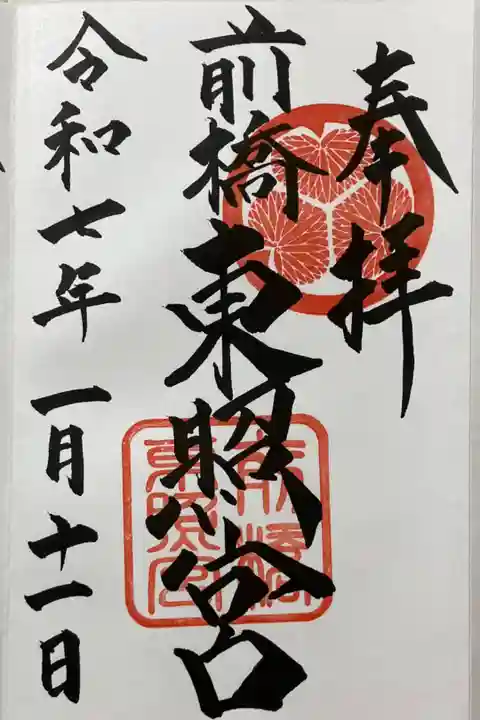 奉拝
前橋東照宮
前橋
東照宮
令和七年一月十一日